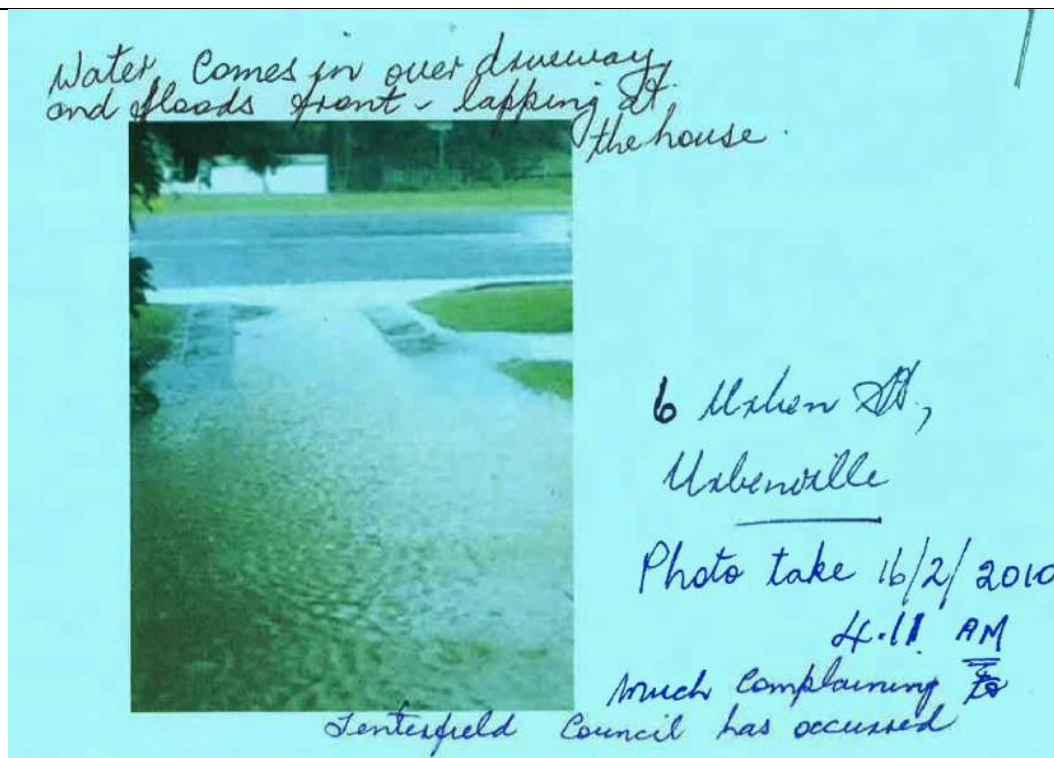 Water Comes in over driveway,
and floods front - lapping at
the house.
6 Urben St,
Urbenville
Photo take 16/2/2010
4.11 AM
much complaining to
Tenterfield Council has occurred